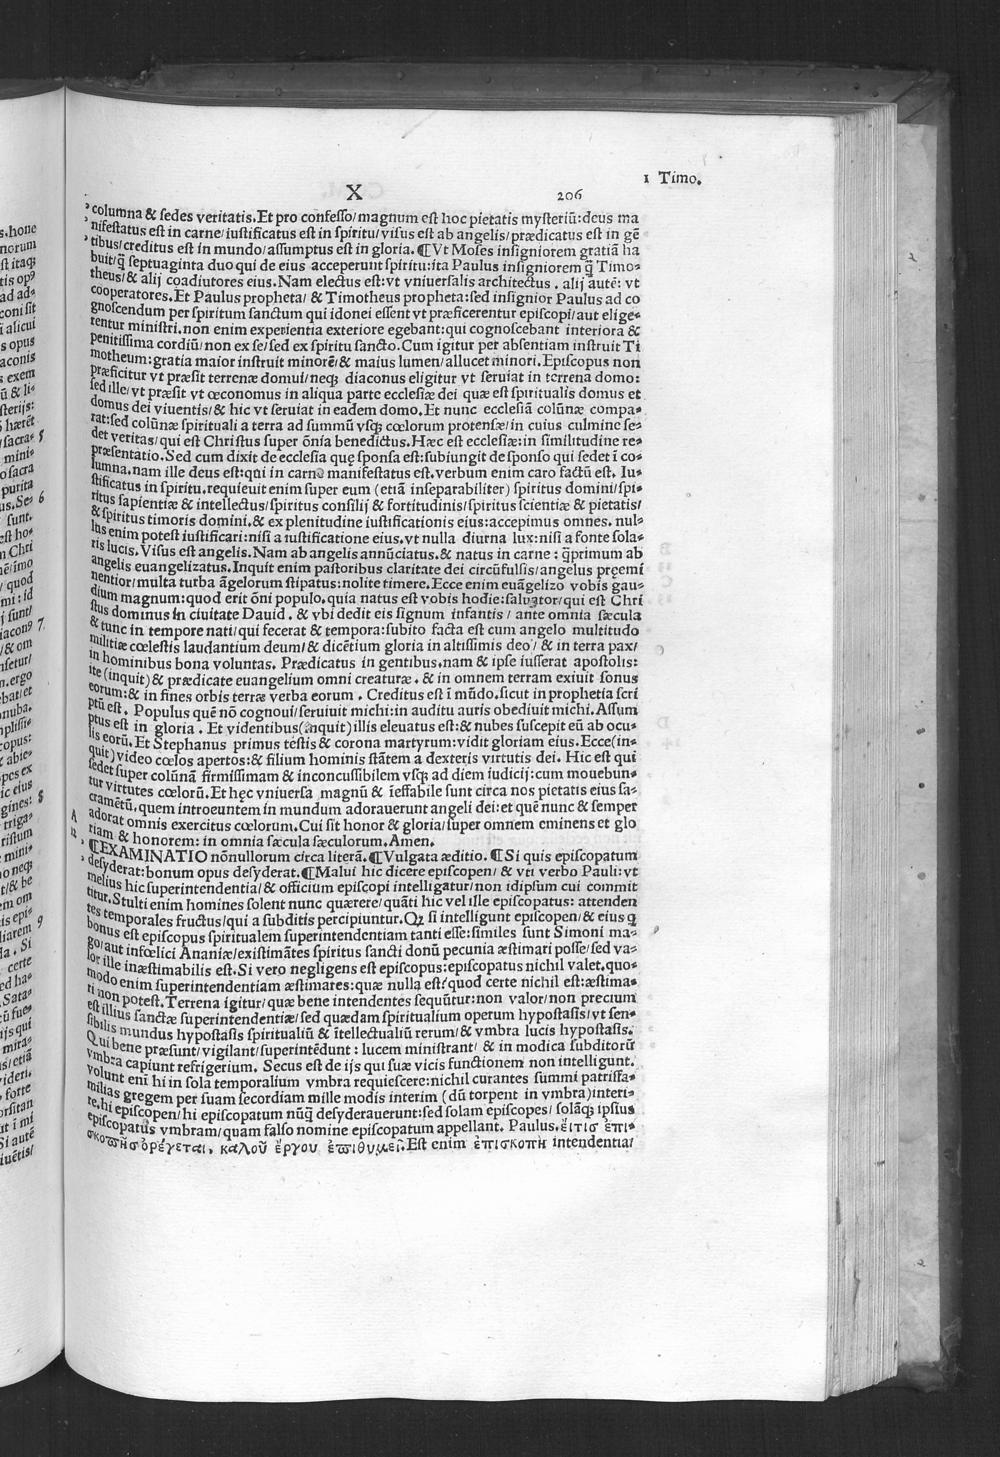 1 Timo.
X 206
columna & sedes veritatis. Et pro confesso/ magnum est hoc pietatis mysteriū: deus ma
nifestatus est in carne/ iustificatus est in spiritu/ visus est ab angelis/ prædicatus est in gē
tibus/ creditus est in mundo/ assumptus est in gloria. ¶ Vt Moses insigniorem gratiā ha
buit/ q̄ septuaginta duo qui de eius acceperunt spiritu: ita Paulus insigniorem q̄ Timo⸗
theus/ & alij coadiutores eius. Nam electus est: vt vniuersalis architectus. alij autē: vt
cooperatores. Et Paulus propheta/ & Timotheus propheta: sed insignior Paulus ad co
gnoscendum per spiritum sanctum qui idonei essent vt præficerentur episcopi/ aut elige⸗
rentur ministri. non enim experientia exteriore egebant: qui cognoscebant interiora &
penitissima cordiū/ non ex se/ sed ex spiritu sancto. Cum igitur per absentiam instruit Ti
motheum: gratia maior instruit minorē/ & maius lumen/ allucet minori. Episcopus non
præficitur vt præsit terrenæ domui/ neqꝫ diaconus eligitur vt seruiat in terrena domo:
sed ille/ vt præsit vt œconomus in aliqua parte ecclesiæ dei quæ est spiritualis domus et
domus dei viuentis/ & hic vt seruiat in eadem domo. Et nunc ecclesiā colūnæ compa⸗
rat: sed colūnæ spirituali a terra ad summū vsqꝫ cœlorum protensæ/ in cuius culmine se⸗
det veritas/ qui est Christus super ōnia benedictus. Hæc est ecclesiæ: in similitudine re⸗
præsentatio. Sed cum dixit de ecclesia quę sponsa est: subiungit de sponso qui sedet ī co⸗
lumna. nam ille deus est: qui in carne manifestatus est. verbum enim caro factū est. Iu⸗
stificatus in spiritu. requieuit enim super eum (etiā inseparabiliter) spiritus domini/ spi⸗
ritus sapientiæ & intellectus/ spiritus consilij & fortitudinis/ spiritus scientiæ & pietatis/
& spiritus timoris domini. & ex plenitudine iustificationis eius: accepimus omnes. nul⸗
lus enim potest iustificari: nisi a iustificatione eius. vt nulla diurna lux: nisi a fonte sola⸗
ris lucis. Visus est angelis. Nam ab angelis annūciatus. & natus in carne: q̄primum ab
angelis euangelizatus. Inquit enim pastoribus claritate dei circūfulsis/ angelus pręemi
nentior/ multa turba āgelorum stipatus: nolite timere. Ecce enim euāgelizo vobis gau⸗
dium magnum: quod erit ōni populo. quia natus est vobis hodie: saluator/ qui est Chri
stus dominus in ciuitate Dauid. & vbi dedit eis signum infantis/ ante omnia sæcula
& tunc in tempore nati/ qui fecerat & tempora: subito facta est cum angelo multitudo
militiæ cœlestis laudantium deum/ & dicētium gloria in altissimis deo/ & in terra pax/
in hominibus bona voluntas. Prædicatus in gentibus. nam & ipse iusserat apostolis:
ite (inquit) & prædicate euangelium omni creaturæ. & in omnem terram exiuit sonus
eorum: & in fines orbis terræ verba eorum. Creditus est ī mūdo. sicut in prophetia scri
ptū est. Populus quē nō cognoui/ seruiuit michi: in auditu auris obediuit michi. Assum
ptus est in gloria. Et videntibus (inquit) illis eleuatus est: & nubes suscepit eū ab ocu⸗
lis eorū. Et Stephanus primus testis & corona martyrum: vidit gloriam eius. Ecce (in⸗
quit) video cœlos apertos: & filium hominis stātem a dexteris virtutis dei. Hic est qui
sedet super colūnā firmissimam & inconcussibilem vsqꝫ ad diem iudicij: cum mouebun⸗
tur virtutes cœlorū. Et hęc vniuersa magnū & ieffabile sunt circa nos pietatis eius sa⸗
cramētū. quem introeuntem in mundum adorauerunt angeli dei: et quē nunc & semper
adorat omnis exercitus cœlorum. Cui sit honor & gloria/ super omnem eminens et glo
riam & honorem: in omnia sæcula sæculorum. Amen.
¶ EXAMINATIO nōnullorum circa literā. ¶ Vulgata æditio. ¶ Si quis episcopatum
desyderat: bonum opus desyderat. ¶ Malui hic dicere episcopen/ & vti verbo Pauli: vt
melius hic superintendentia/ & officium episcopi intelligatur/ non idipsum cui commit
titur. Stulti enim homines solent nunc quærere/ quāti hic vel ille episcopatus: attenden
tes temporales fructus/ qui a subditis percipiuntur. Qꝫ si intelligunt episcopen/ & eius q̄
bonus est episcopus spiritualem superintendentiam tanti esse: similes sunt Simoni ma⸗
go/ aut infœlici Ananiæ/ existimātes spiritus sancti donū pecunia æstimari posse/ sed va⸗
lor ille inæstimabilis est. Si vero negligens est episcopus: episcopatus nichil valet. quo⸗
modo enim superintendentiam æstimares: quæ nulla est/ quod certe nichil est: æstima⸗
ri non potest. Terrena igitur/ quæ bene intendentes sequūtur: non valor/ non precium
est illius sanctæ superintendentiæ/ sed quædam spiritualium operum hypostasis/ vt sen⸗
sibilis mundus hypostasis spiritualiū & ītellectualiū rerum/ & vmbra lucis hypostasis.
Qui bene præsunt/ vigilant/ superintēdunt: lucem ministrant/ & in modica subditorū
vmbra capiunt refrigerium. Secus est de ijs qui suæ vicis functionem non intelligunt.
volunt enī hi in sola temporalium vmbra requiescere: nichil curantes summi patrisfa⸗
milias gregem per suam secordiam mille modis interim (dū torpent in vmbra) interi⸗
re. hi episcopen/ hi episcopatum nūq̄ desyderauerunt: sed solam episcopes/ solāqꝫ ipsius
episcopatus vmbram/ quam falso nomine episcopatum appellant. Paulus. ἔιτις ἐπι⸗
σκοπῆς ὀρέγεται, καλοῦ ἔργου ἐπιθυμεῖ. Est enim ἐπισκοπὴ intendentia/